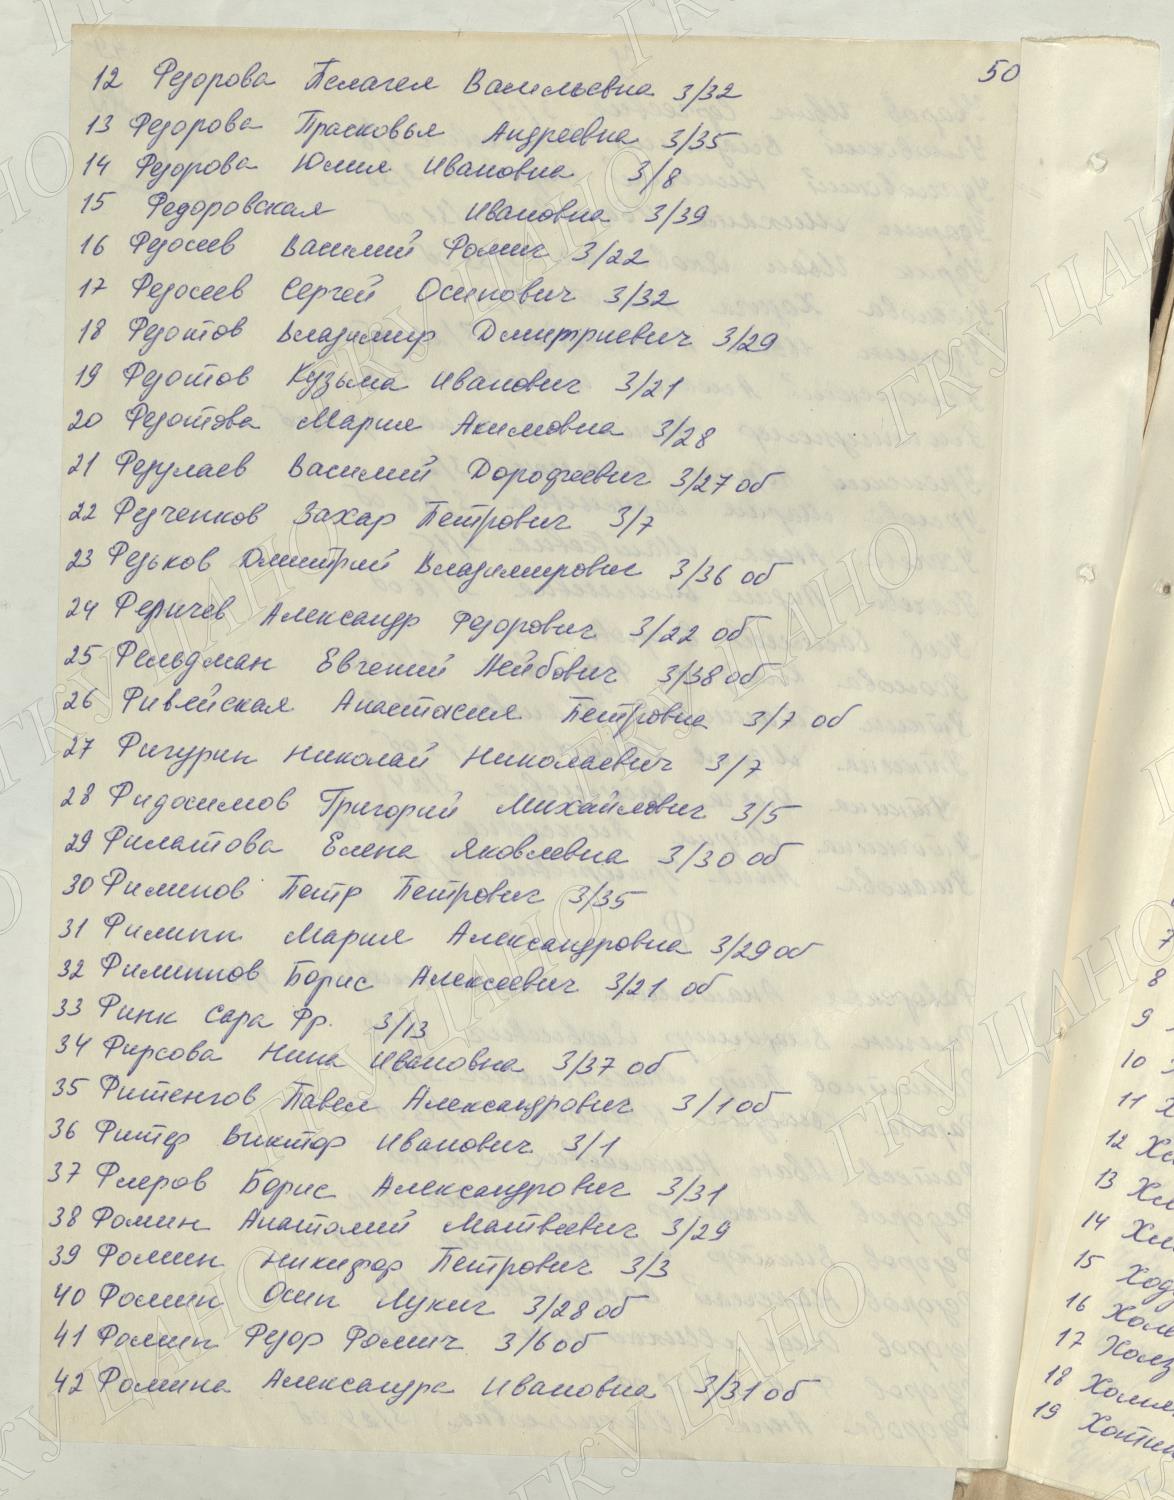 50
12 Федорова Пелагея Васильевна 3/32
13 Федорова Прасковья Андреевна 3/35
14 Федорова Юлия Ивановна 3/8
15 Федоровская Ивановна 3/39
16 Федосеев Василий Фомич 3/22
17 Федосеев Сергей Осипович 3/32
18 Федотов Владимир Дмитриевич 3/29
19 Федотов Кузьма Иванович 3/21
20 Федотова Мария Акимовна 3/28
21 Федулаев Василий Дорофеевич 3/27 об
22 Федченков Захар Петрович 3/7
23 Федьков Дмитрий Владимирович 3/36 об
24 Александр Федорович 3/22 об
25 Фельдман Евгений Лейбович 3/38 об
26 Фивейская Анастасия Петровна 3/7 об
27 Фигурин Николай Николаевич 3/7
28 Фидосимов Григорий Михайлович 3/5
29 Филатова Елена Яковлевна 3/30 об
30 Филинов Петр Петрович 3/35
31 Филипп Мария Александровна 3/29 об
32 Филиппов Борис Алексеевич 3/21 об
33 Финк Сара Фр. 3/13
34 Фирсова Нина Ивановна 3/37 об
35 Фитенгов Павел Александрович 3/1 об
36 Фитер Виктор Иванович 3/1
37 Флеров Борис Александрович 3/31
38 Фомин Анатолий Матвеевич 3/29
39 Фомин Никифор Петрович 3/3
40 Фомин Осип Лукич 3/28 об
41 Фомин Федор Фомич 3/6 об
42 Фомина Александра Ивановна 3/31 об
7
8
9
10
11
12
13
14
15
16
17
18
19
ГКУ ЦАНО